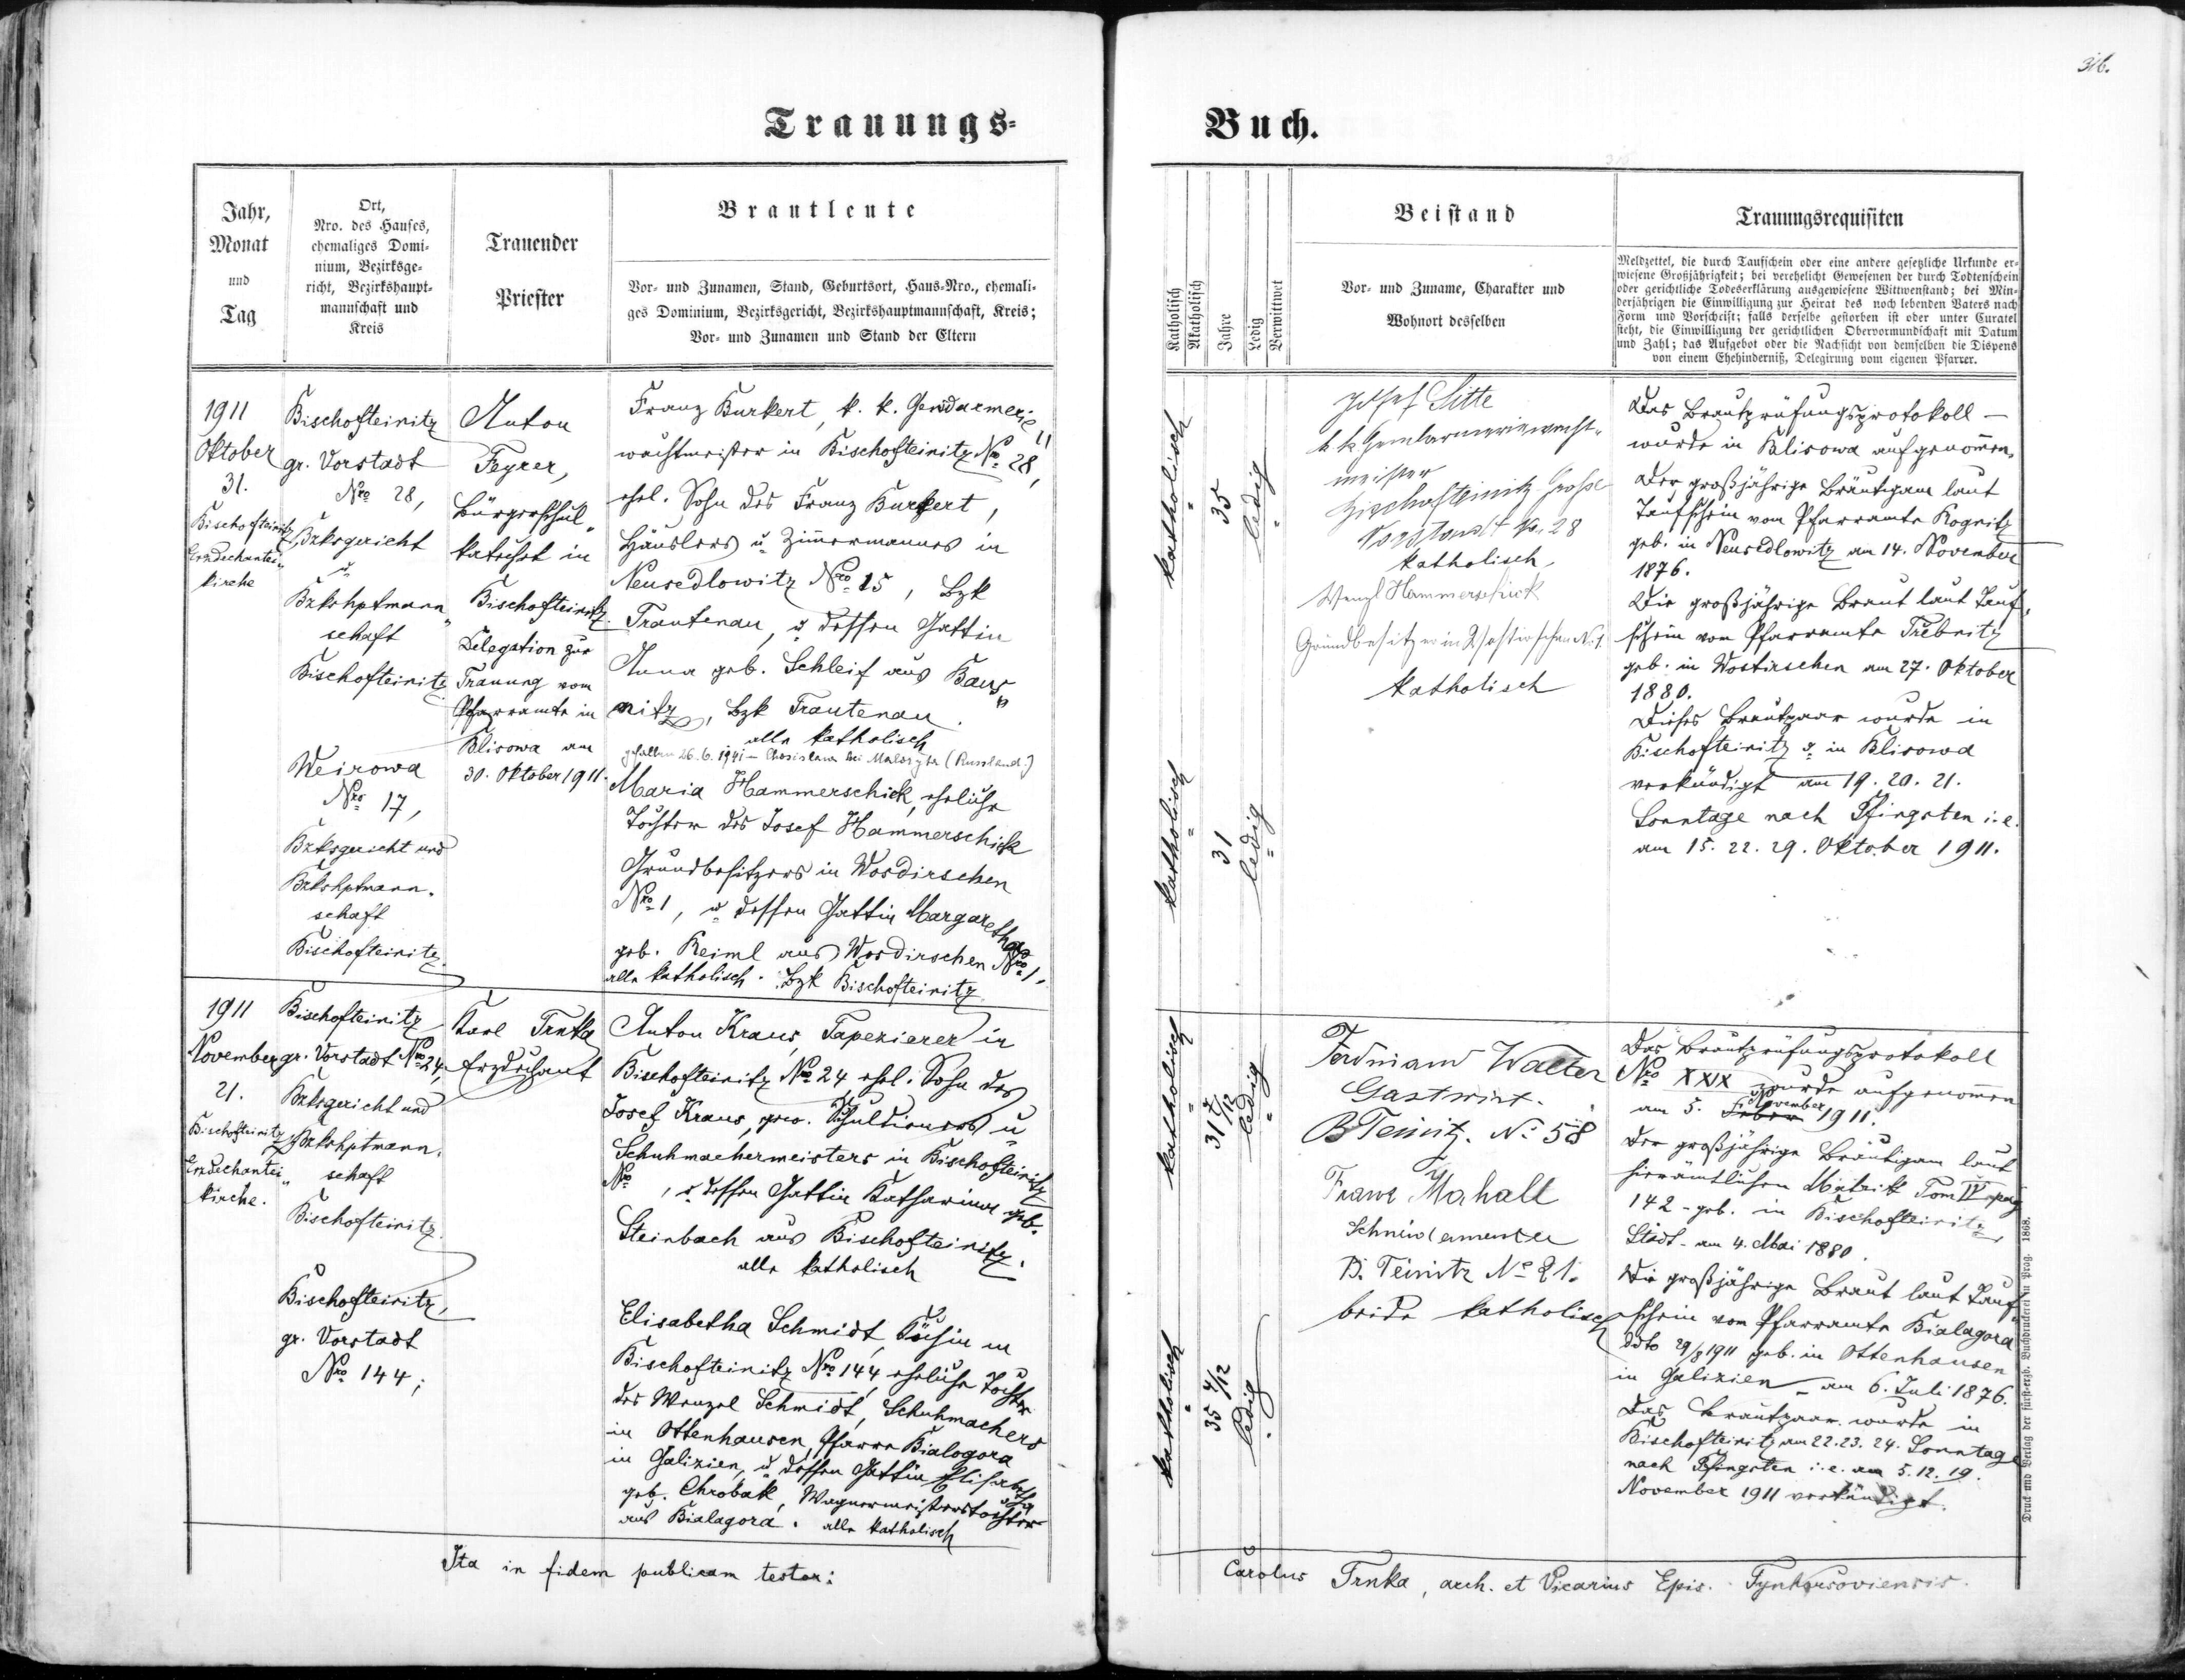 316.
Trauungs-
Buch.
Jahr,
Monat
und
Tag
Ort,
Nro. des Hauses,
ehemaliges Domi-
nium, Bezirksge-
richt, Bezirkshaupt-
mannschaft und
Kreis
Trauender
Priester
Brautleute
Vor- und Zunamen, Stand, Geburtsort, Haus-Nro., ehemali-
ges Dominium, Bezirksgericht, Bezirkshauptmannschaft, Kreis;
Vor- und Zunamen und Stand der Eltern
Katholisch
Akatholisch
Jahre
Ledig
Verwittwet
Beistand
Vor- und Zuname, Charakter und
Wohnort desselben
Trauungsrequisiten
Meldzettel, die durch Taufschein oder eine andere gesetzliche Urkunde er-
wiesene Großjährigkeit; bei verehelicht Gewesenen der durch Todtenschein
oder gerichtliche Todeserklärung ausgewiesene Wittwenstand; bei Min-
derjährigen die Einwilligung zur Heirat des noch lebenden Vaters nach
Form und Vorschrift; falls derselbe gestorben ist oder unter Curatel
steht, die Einwilligung der gerichtlichen Obervormundschaft mit Datum
und Zahl; das Aufgebot oder die Nachsicht von demselben die Dispens
von einem Ehehinderniß, Delegirung vom eigenen Pfarrer.
1911
Oktober
31.
Bischofteinitz
Erzdechantei-
kirche
Bischofteinitz
gr. Vorstadt
Nro 28,
Bzksgericht
u
Bzkshptmann-
schaft
Bischofteinitz
Weirowa
Nro 17,
Bzksgericht und
Bzkshptmann-
schaft
Bischofteinitz.
Anton
Feyrer,
Bürgerschul-
katechet in
Bischofteinitz.
Delegation zur
Trauung vom
Pfarramte in
Blisowa am
30. Oktober 1911.
Franz Burkert, k. k. Gendarmerie-
wachtmeister in Bischofteinitz Nro 28,
ehel. Sohn des Franz Burkert,
Häuslers u. Zimmermannes in
Neusedlowitz Nro 15, Bzk
Trautenau, u dessen Gattin
Anna geb. Schleif aus Baus-
nitz, Bzk Trautenau.
alle katholisch
gefallen 26.6.1941 - bei (Russland.)
Maria Hammerschick, eheliche
Tochter des Josef Hammerschick
Grundbesitzers in Wosdirschen
Nro 1, u dessen Gattin Margaretha
geb. Reiml aus Wosdirschen Nro 1,
alle katholisch. Bzk Bischofteinitz.
katholisch
35
ledig
katholisch
31
ledig
Josef Sitte
k. k. Gendarmeriewacht-
meister
Bischofteinitz Große
Vorstadt No. 28
katholisch,
Wenzl Hammerschick
Grundbesitzer in N. 1.
katholisch
Das Brautprüfungsprotokoll -
wurde in Blisowa aufgenommen.
Der großjährige Bräutigam laut
Taufschein vom Pfarramte Rognitz
geb. in Neusedlowitz am 14. November
1876.
Die großjährige Braut laut Tauf-
schein vom Pfarramte Třebnitz
geb. in Wostirschen am 27. Oktober
1880.
Dieses Brautpaar wurde in
Bischofteinitz u. in Blisowa
verkündigt am 19. 20. 21.
Sonntage nach Pfingsten i. e.
am 15. 22. 29. Oktober 1911.
1911
November
21.
Bischofteinitz
Erzdechantei-
kirche.
Bischofteinitz
gr. Vorstadt Nro 24,
Bzksgericht und
Bzkshptmann-
schaft
Bischofteinitz.
Bischofteinitz,
gr. Vorstadt
Nro 144;
Karl Trnka
Erzdechant
Anton Kraus, Tapezierer in
Bischofteinitz Nro 24, ehel. Sohn des
Josef Kraus, gew. Schuldieners u
Schuhmachermeisters in Bischofteinitz
Nro , u dessen Gattin Katharina geb.
Steinbach aus Bischofteinitz.
alle katholisch
Elisabetha Schmidt, Köchin in
Bischofteinitz Nro 144, eheliche Tochter
des Wenzel Schmidt, Schuhmachers
in Ottenhausen, Pfarre Bialogora
in Galizien, u dessen Gattin Elisabetha
geb. Chrobak, Wagnermeisterstochter
aus Bialagora. alle katholisch
katholisch
31 7/12
ledig
katholisch
35 4/12
ledig
Ferdinand Walter
Gastwirt.
B Teinitz. No 58
Franz Mahall
Schneidermeister
B. Teinitz No 21.
beide katholisch
Das Brautprüfungsprotokoll
Nro XXIX wurde aufgenommen
am 5. November 1911.
Der großjährige Bräutigam laut
hierämtlicher Matrik Tom IV pag
142 - geb. in Bischofteinitz,
Stadt - am 4. Mai 1880.
Die großjährige Braut laut Tauf-
schein vom Pfarramte Bialagora
ddto 29/8 1911 geb. in Ottenhausen
in Galizien - am 6. Juli 1876.
Das Brautpaar wurde in
Bischofteinitz am 22. 23. 24. Sonntage
nach Pfingsten i. e. am 5. 12. 19.
November 1911 verkündigt.
Druck und Verlag der fürsterzb. Buchdruckerei in Prag. 1868.
Ita in fidem publicam testor:
Carolus Trnka, arch. et Vicarius Epis.